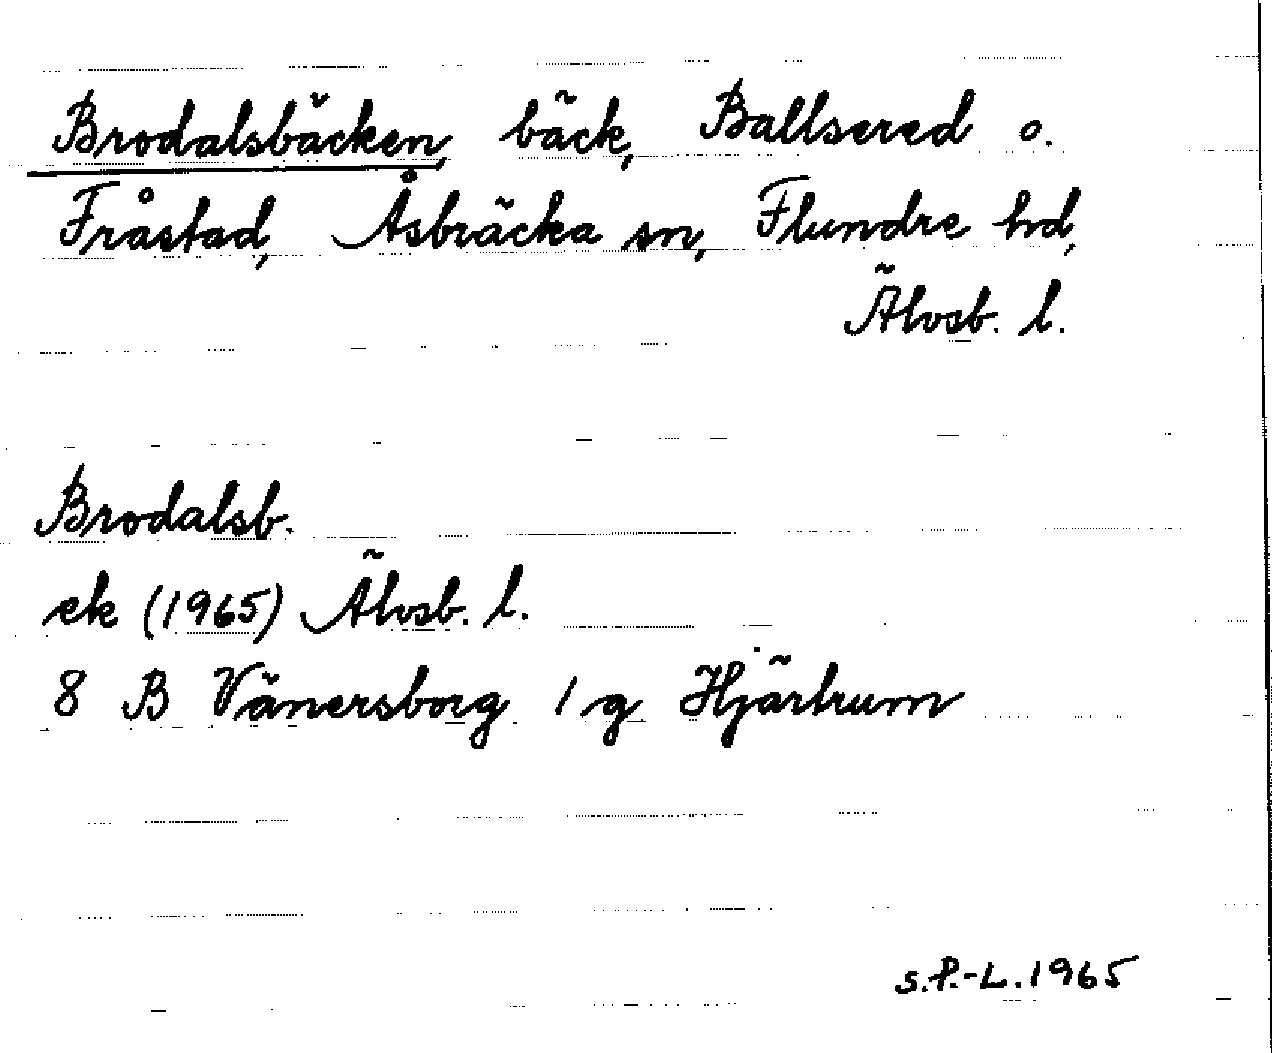 Brodalsbäcken, bäck, Ballsered o.
Fråstad, Åsbräcka sn, Flundre hd,
Älvsb. l.
Brodalsb.
ek (1965) Älvsb. l.
8 B Vänersborg 1 g Hjärtrum
S.P.-L. 1965